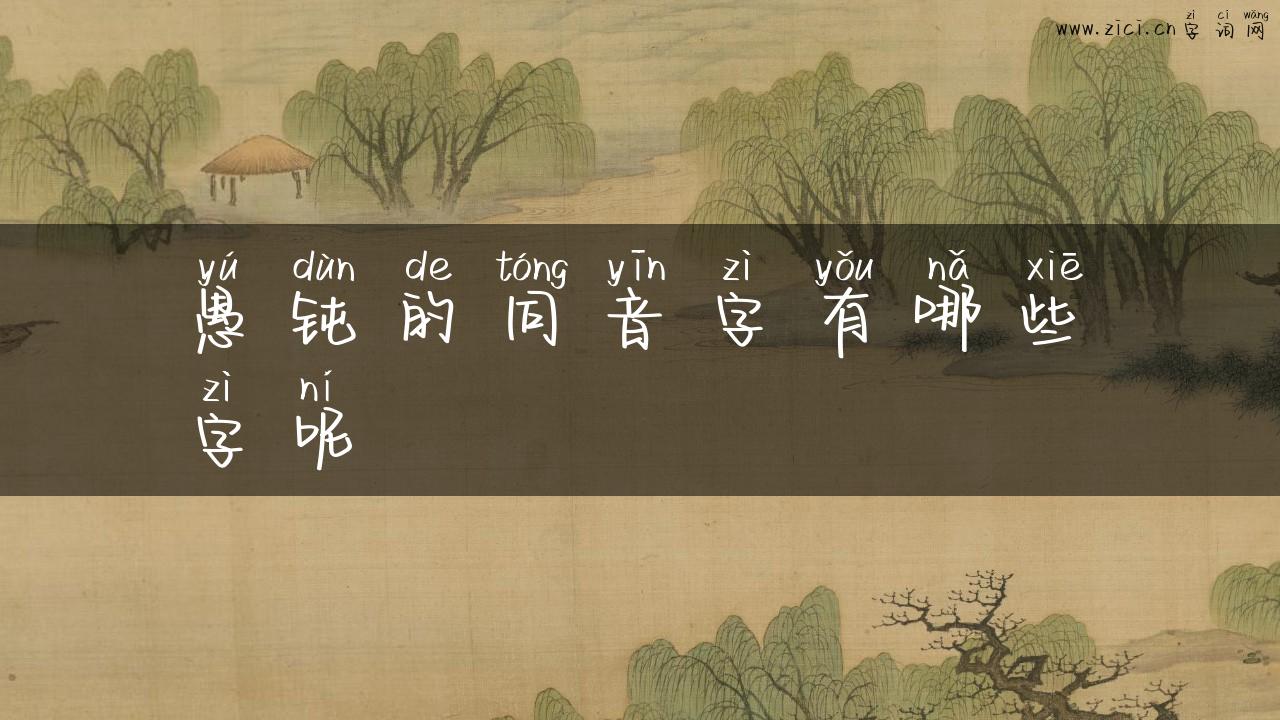 zì cí wǎng
www.zici.cn 字 词 网
yú dùn de tóng yīn zì yǒu nǎ xiē
愚 钝 的 同 音 字 有 哪 些
zì ní
字 呢